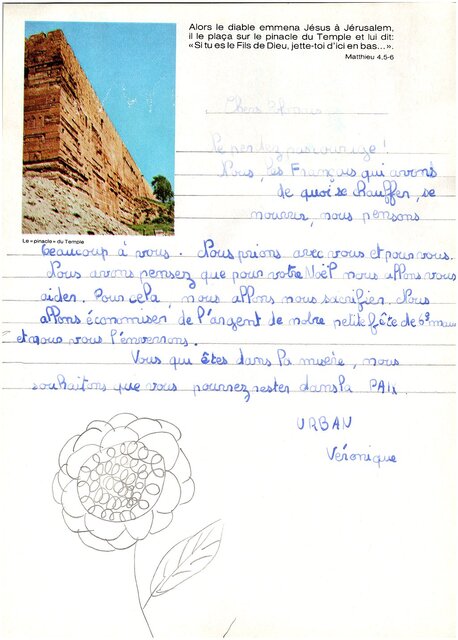 Alors le diable emmena Jésus à Jérusalem,
il le plaça sur le pinacle du Temple et lui dit:
«Si tu es le Fils de Dieu, jette-toi d'ici en bas...».
Matthieu 4,5-6
Le «pinacle» du Temple
Chers
Ne perdez pas courage!
Nous, les Français qui avons
de quoi se chauffer, se
nourrir, nous pensons
beaucoup à vous. Nous prions avec vous et pour vous.
Nous avons pensez que pour votre Noël nous allons vous
aider. Pour cela, nous allons nous sacrifier. Nous
allons économiser de l'argent de notre petite fête de 6e
et nous vous l'enverrons.
Vous qui êtes dans la misère, nous
souhaitons que vous pourrez rester dans la PAIX.
URBAN
Véronique